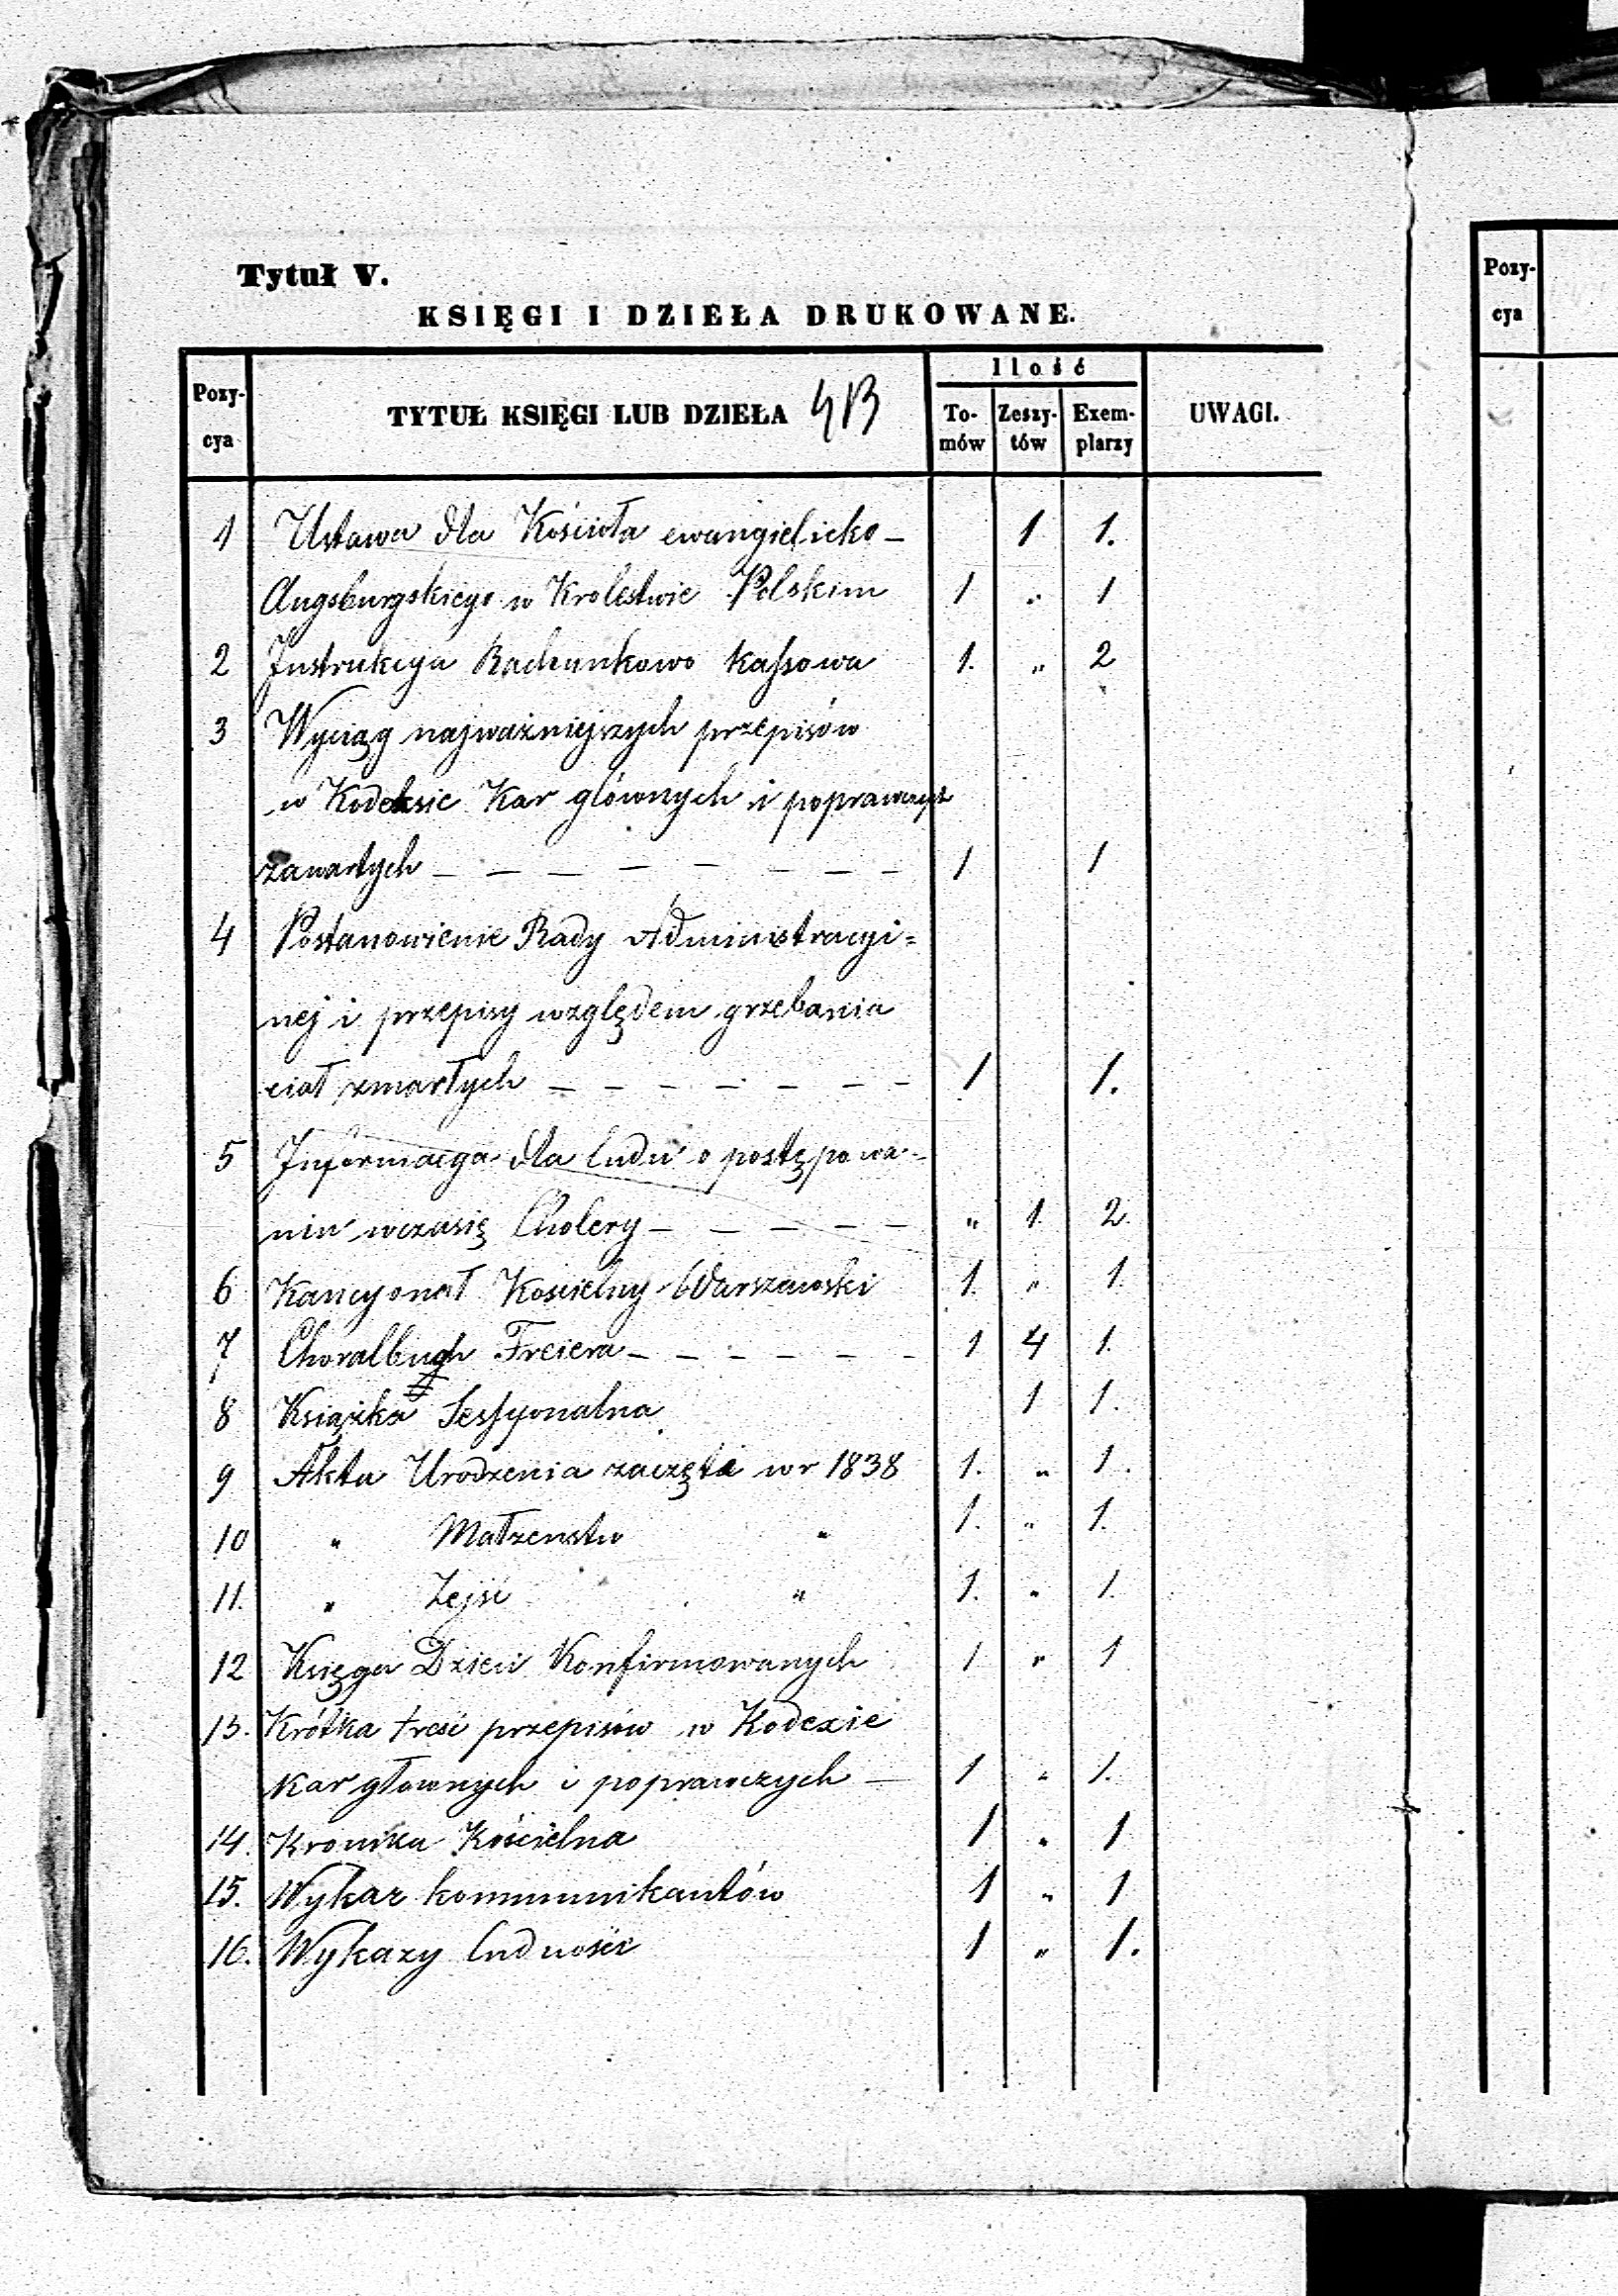 Tytuł V.
KSIĘGI I DZIEŁA DRUKOWANE.
Pozy-
cya
TYTUŁ KSIĘGI LUB DZIEŁA
Ilość
To-
mów
Zeszy-
tów
Exem-
plarzy
UWAGI.
1 Ustawa dla Kościoła ewangielicko- 1 1.
Augsburgskiego w Krolestwie Polskim 1 „ 1
2 Instrukcya Rachunkowo kassowa 1. „ 2
3 Wyciąg najważniejszych przepisów
w Kodeksie Kar głównych i poprawczych
zawartych - - - - - - - 1 1
4 Postanowienie Rady Administracyi=
nej i przepisy względem grzebania
ciał zmarłych - - - - - - - 1 1.
5 Informacya dla ludu o postępowa-
niu wczasię Cholery - - - - - „ 1. 2.
6 Kancyonał Koscielny Warszawski 1. „ 1.
7 Choralbugh Freiera - - - - - - 1 4 1.
8 Książka Sessyonalna 1 1.
9 Akta Urodzenia zaczęta w r 1838 1. „ 1.
10 „ Małzenstw „ 1. „ 1.
11. „ Zejść „ 1. „ 1.
12 Księga Dzieci Konfirmowanych 1 „ 1
13. Krótka treść przepisów w Kodexie
Kar głownych i poprawczych - 1 „ 1.
14. Kronika Kościelna 1 „ 1
15. Wykaz kommunikantów 1 „ 1
16. Wykazy ludności 1 „ 1.
Pozy-
cya